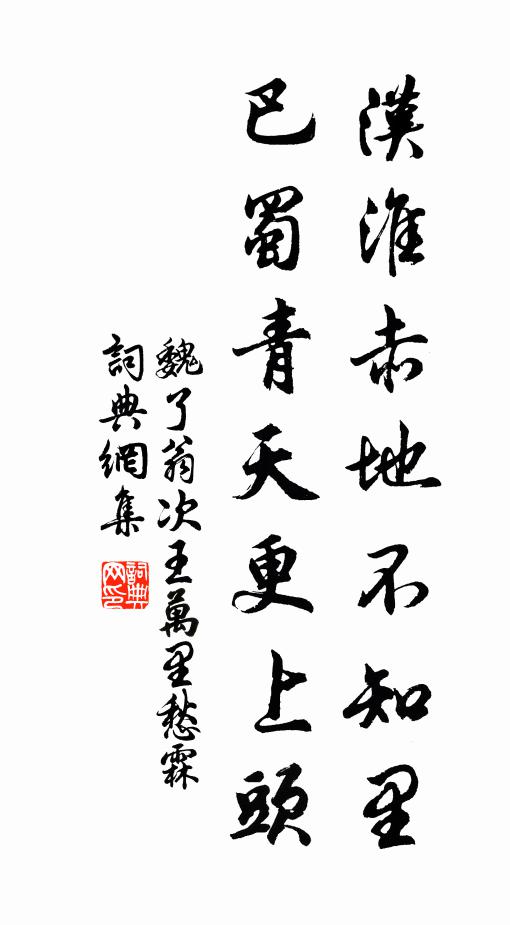 漢淮赤地不知里
巴蜀青天更上頭
魏了翁次王萬里愁霖
詞典網集
詞典网印